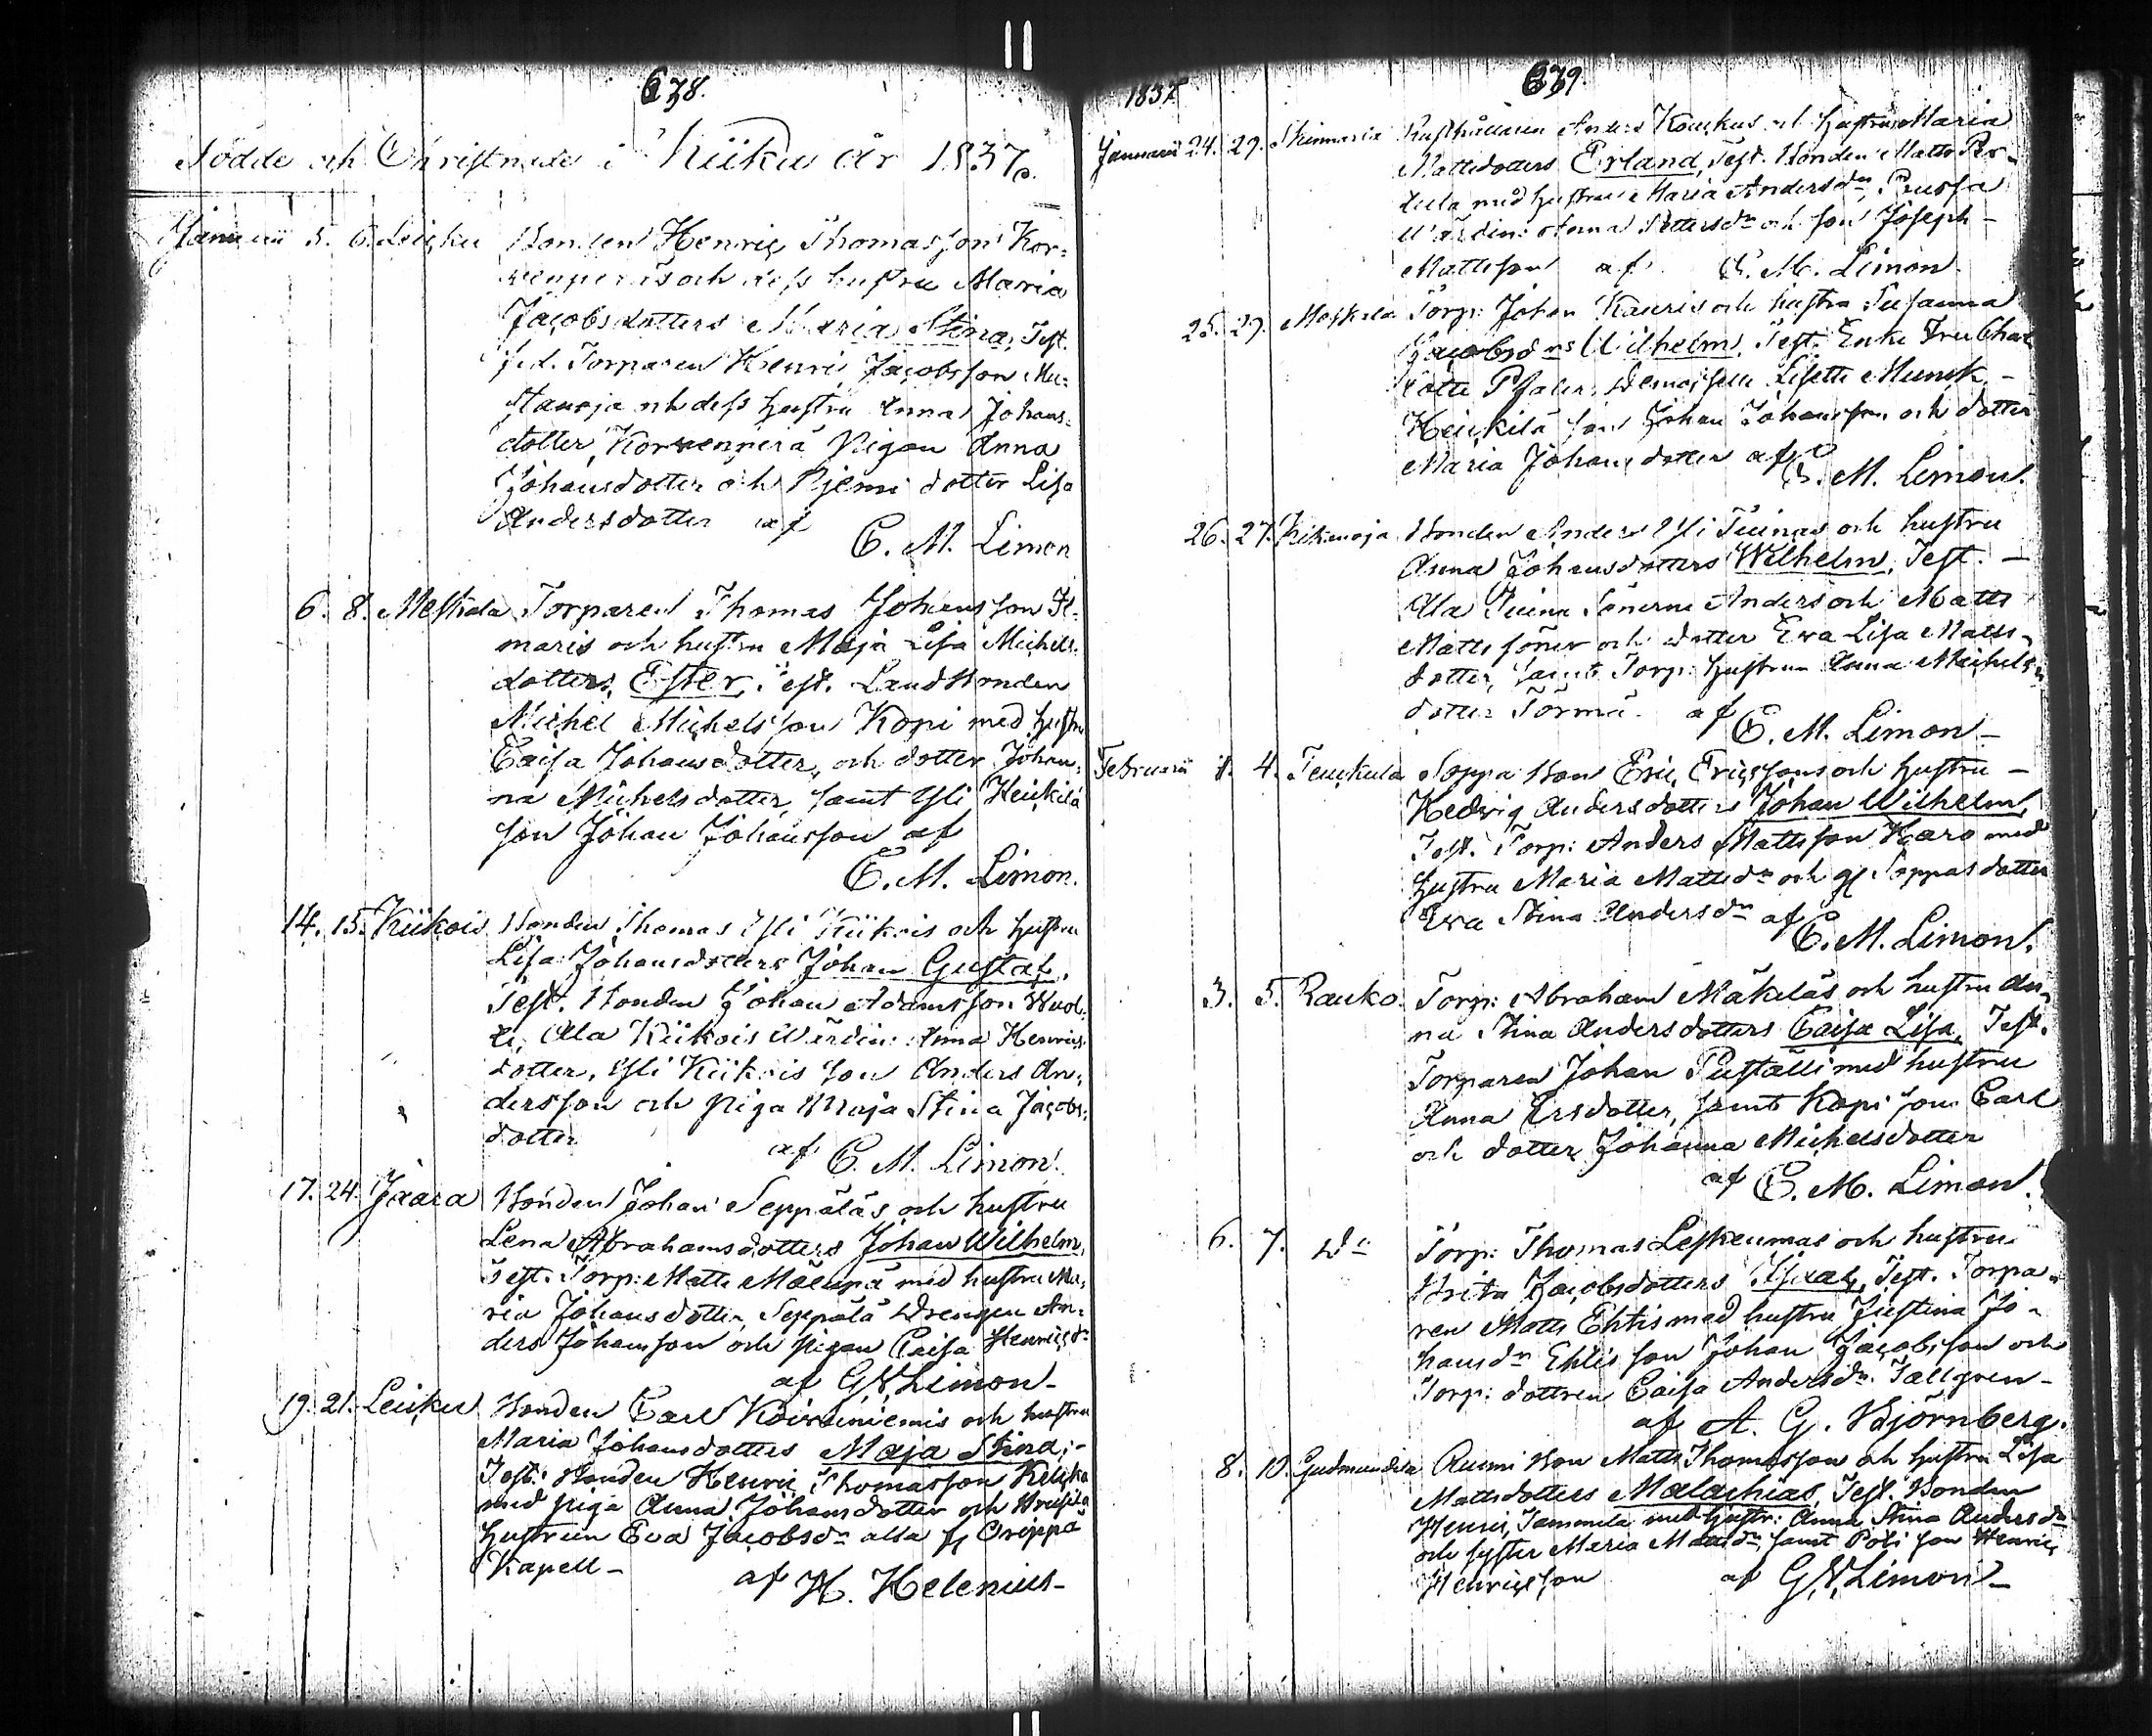 678.
Födde och Christnade i Kiiku år 1837.
Januarii 5. 6. Leiku Bonden Henric Thomasson Kor-
venperäs och dess hustru Maria
Jacobsdotters Maria Stina, Test.
Torparen Henric Jacobsson Mu-
staoja och dess hustru Anna Johans-
dotter, Korvenperä Pigan Anna
Johansdotter och dotter Lisa
Andersdotter af
C. M. Limon
6. 8. Meskala Torparen Thomas Johansson Il-
maris och hustru Maja Lisa Michels-
dotters, Ester, Test. Landbonden
Michel Michelsson Kopi med hustru
Caisa Johansdotter, och dotter Johan-
na Michelsdotter, samt Yli Heickilä
son Johan Johansson af
C. M. Limon.
14. 15. Kiikois Bonden Thomas Yli Kiikois och hustru
Lisa Johansdotters Johan Gustaf,
Test. Bonden Johan Adamsson
Ala Kiikois Värdin: Anna Henrics-
dotter, Yli Kiikois son Anders An-
dersson och piga Maja Stina Jacobs-
dotter af C. M. Limon.
17. 24. Jaara Bonden Johan Seppäläs och hustru
Lena Abrahamsdotters Johan Wilhelm,
Test. Torp: Matts Mäenpä med hustru Ma-
ria Johansdotter, Seppälä Drengen An-
ders Johansson och pigan Caisa Henricsdr
af G N Limon-
19. 21. Leiku Bonden Carl Koivuniemis och hustru
Maria Johansdotters Maja Stina;-
Test: Bonden Henric Thomasson
med piga Anna Johansdotter och
hustrun Eva Jacobsdr alla fr
Kapell- af H. Helenius-
1837
679.
Januarii 24. 29. Skinnaria Rusthållaren Anders Kouckus och hustrus Maria
Mattsdotters Erland, Test. Bonden Matts
med hustru Maria Andersdr,
Värdin: Anna Pettersdr och son Joseph-
Mattsson af C. M. Limon
25. 29. Meskala Torp: Johan Kauris och hustru Susanna
Jacobsdrs Wilhelm, Test. Enke Fru Char-
lotte Demoiselle Lisette Munck-
Heickilä son Johan Johansson och dotter
Maria Johansdotter af
C. M. Limon.
26. 27. Kikenoja Bonden Anders Yli Tuinas och hustru
Anna Johansdotters Wilhelm, Test. -
Ala Tuina Sönerne Anders och Matts
Mattssöner och dotter Eva Lisa Matts-
dotter, samt Torp: hustrun Anna Michels-
dotter Törmä. af
C. M. Limon-
Februarii 4. Teuckula Soppa: Bon Eric Ericssons och hustru -
Hedvig Andersdotters Johan Wilhelm,
Test. Torp: Anders Mattsson Karo med
hustru Maria Mattsdr och Soppas dotter
Eva Stina Andersdr af
C. M. Limon.
3. 5. Rauko. Torp: Abraham Mäkeläs och hustru An-
na Stina Andersdotters Caisa Lisa, Test.
Torparen Johan med hustru
Anna Ersdotter, samt Kopi son Carl
och dotter Johanna Michelsdotter
af C. M. Limon.
6. 7. Do Torp: Thomas Leskenmas och hustru
Brita Jacobsdotters Isaac, Test. Torpa-
ren Matts Ehtis med hustru Justina Jo-
hansdr Ehtis son Johan Jacobsson och
Torp: dottren Caisa Andersdr. Tallgren-
af A. G. Björnberg.
8. 10. Gudmundila Rusmi Bon Matts Thomasson och hustru Lisa
Mattsdotters Malachias, Test. Bonden
Henric Tamanda med hustr: Anna Stina Andersdr
och syster Maria Mattsdr, samt Poti son Henric
Henricsson af G N Limon-